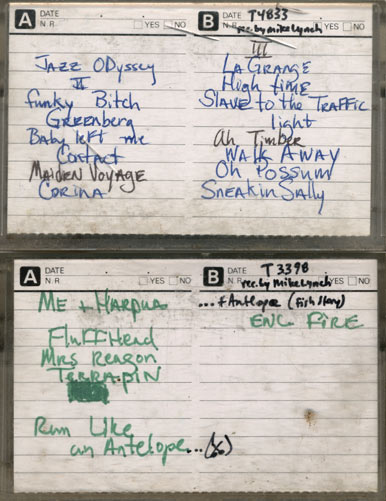 A DATE
N.R. YES NO
Jazz ODyssey
II
funky Bitch
Greenberg
Baby left me
Contact
Maiden Voyage
Corina
B DATE T4833
N.R. rec. by mike lynch
III
LaGrange
High time
Slave to the Traffic
light
Ah Timber
Walk Away
Oh Possum
Sneakin Sally
A DATE
N.R. YES NO
Me + Harpua
Fluffhead
Mrs Reagon
Terrapin
Run Like
an Antelope...(
B DATE T3398
N.R. rec. by mike lynch YES NO
...+ Antelope (Fish Story)
ENC. Fire